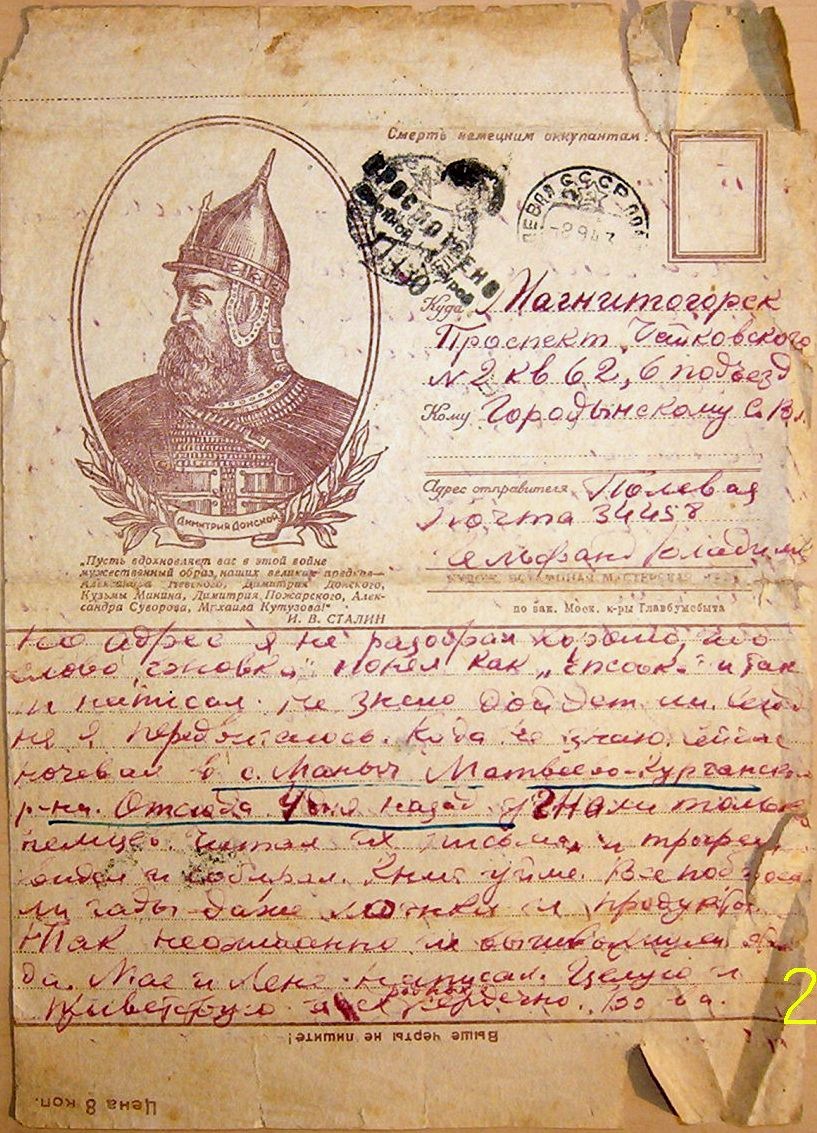 Смерть немецким оккупантам!
ПРОСМОТРЕНО
СССР
Куда Магнитогорск
Проспект Чайковского
№ 2 кв 62, 6 подъезд
Кому Городынскому С. Вл.
Адрес отправителя Полевая
почта 34458
Гельфанд Владимир
ДИМИТРИЙ ДОНСКОЙ
„Пусть вдохновляет вас в этой войне
мужественный образ наших великих предков—
Александра Невского, Димитрия Донского,
Кузьмы Минина, Димитрия Пожарского, Алек-
сандра Суворова, Михаила Кутузова!“
И. В. СТАЛИН
по зак. Моск. к-ры Главбумсбыта
но адрес я не разобрал хорошо, ибо
слово понял как и так
и написал. Не знаю дойдет ли. Сегод
ня я Куда не знаю. Сейчас
ночевал в с. Маныч Матвеево-Курганском
р-на. Отсюда 4 дня назад угнали только
немцев. Читал их письма, и трофеи
видел и собирал. Книг уйма. Все поброса
ли гады даже ложки и продукты.
Так неожиданно и вышвырнули
да. Мае и Лене написал. Целую и
приветствую всех сердечно. Вова.
Выше черты не пишите!
Цена 8 коп.
2